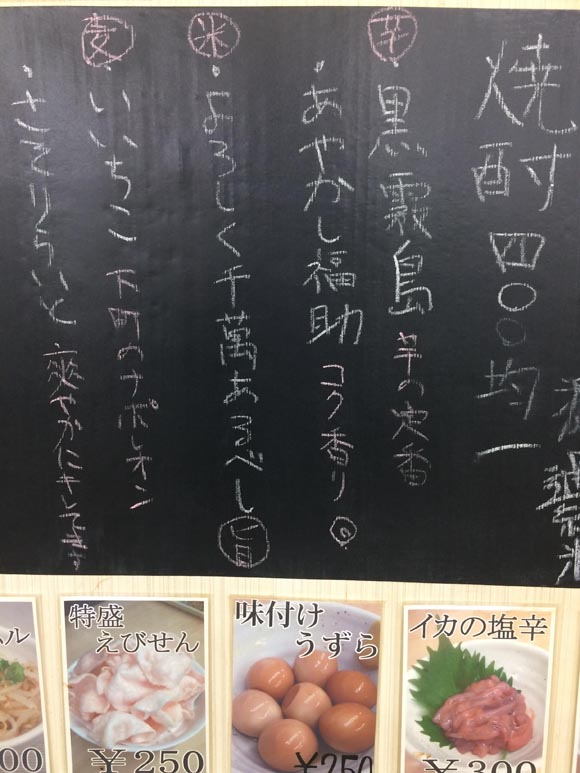 焼酎 四〇〇均一
芋
・黒霧島 芋の定番
・あやかし福助 コク香り◎
米
・よろしく千萬あるべし 旨
麦
・いいちこ 下町のナポレオン
・さそりらいと 爽やかにキレてます
特盛
えびせん
¥250
味付け
うずら
¥250
イカの塩辛
¥300
ル
00